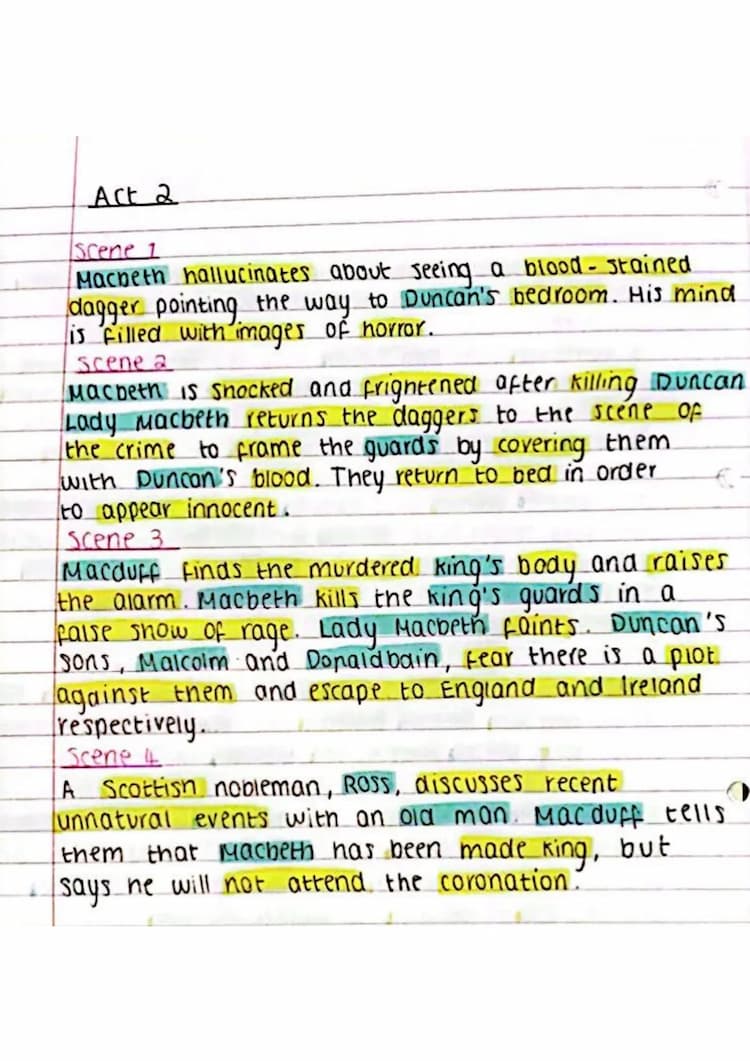 Act 2
Scene 1
Macbeth hallucinates about seeing a blood-stained
dagger pointing the way to Duncan's bedroom. His mind
is filled with images of horror.
Scene 2
Macbeth is shocked and frightened after killing Duncan
Lady Macbeth returns the daggers to the scene of
the crime to frame the guards by covering them
with Duncan's blood. They return to bed in order
to appear innocent.
Scene 3
Macduff finds the murdered king's body and raises
the alarm. Macbeth kills the king's guards in a
false show of rage. Lady Macbeth faints. Duncan's
sons, Malcolm and Donaldbain, fear there is a plot
against them and escape to England and Ireland
respectively.
Scene 4
A Scottish nobleman, Ross, discusses recent
unnatural events with an old man. Macduff tells
them that Macbeth has been made king, but
says he will not attend the coronation.